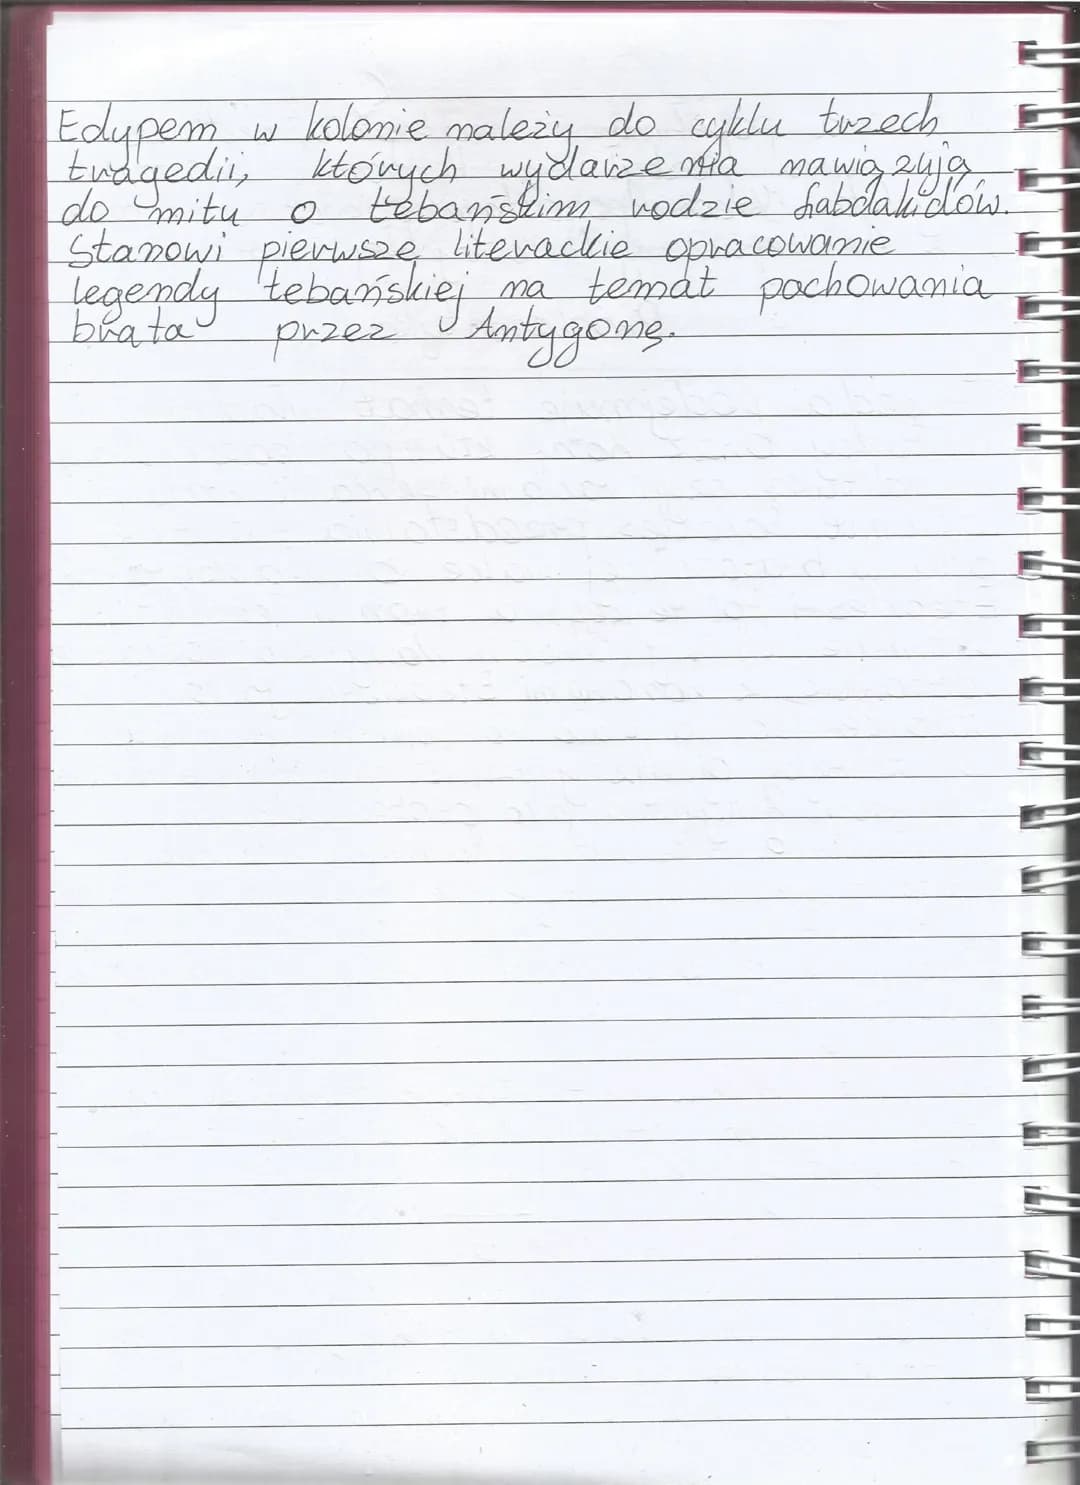 Edypem w kolonie należy do cyklu trzech
tragedii, których wydarzenia nawiązują
do mitu o tebańskim rodzie Labdakidów.
Stanowi pierwsze literackie opracowanie
legendy tebańskiej na temat pochowania
brata przez Antygonę.